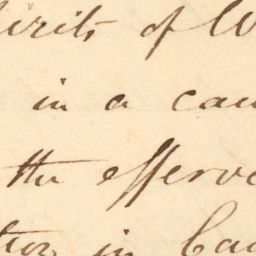 irits of W
in a cau
the efferve
tion in Cau